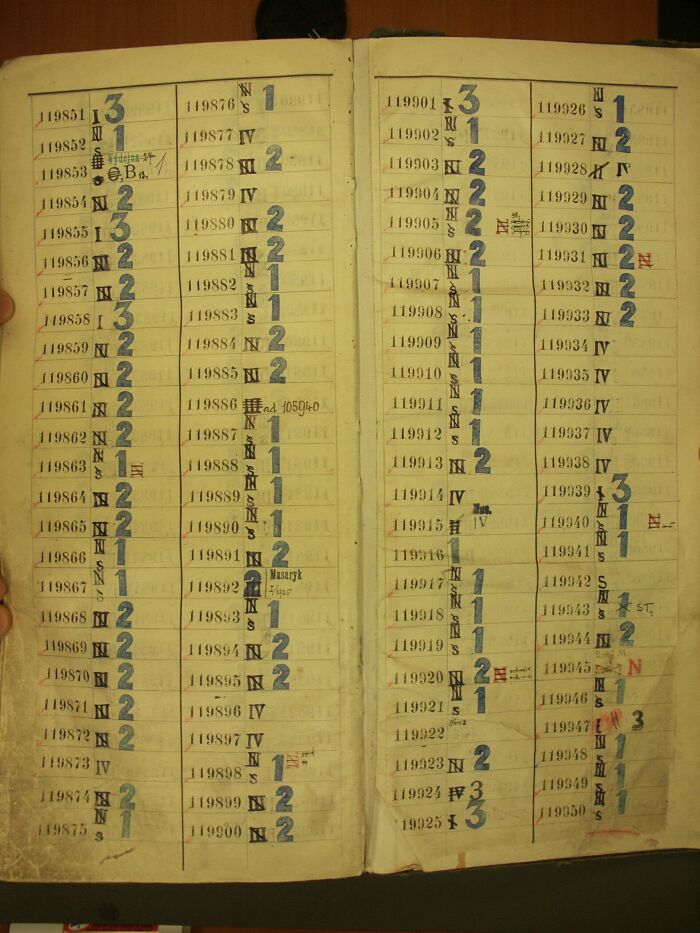 119851 I 3
119852 N s 1
119853 B
119854 N 2
119855 I 3
119856 N 2
119857 N 2
119858 I 3
119859 N 2
119860 N 2
119861 N 2
119862 N 2
119863 N s 1
119864 N 2
119865 N 2
119866 N s 1
119867 N s 1
119868 N 2
119869 N 2
119870 N 2
119871 N 2
119872 N 2
119873 IV
119874 N 2
119875 N s 1
119876 N s 1
119877 IV
119878 N 2
119879 IV
119880 N 2
119881 N 2
119882 N s 1
119883 N s 1
119884 N 2
119885 N 2
119886 ad 105940
119887 N s 1
119888 N s 1
119889 N s 1
119890 N s 1
119891 N 2
119892 2 Masaryk
119893 N s 1
119894 N 2
119895 N 2
119896 IV
119897 IV
119898 N s 1
119899 N 2
119900 N 2
119901 I 3
119902 N s 1
119903 N 2
119904 N 2
119905 N s 2
119906 N 2
119907 N s 1
119908 N s 1
119909 N s 1
119910 N s 1
119911 N s 1
119912 N s 1
119913 N 2
119914 IV
119915 Mus. IV
119916 1
119917 N s 1
119918 N s 1
119919 N s 1
119920 N 2
119921 N s 1
119922
119923 N 2
119924 IV 3
119925 I 3
119926 N s 1
119927 N 2
119928 IV
119929 N 2
119930 N 2
119931 N 2
119932 N 2
119933 N 2
119934 IV
119935 IV
119936 IV
119937 IV
119938 IV
119939 I 3
119940 N s 1
119941 N s 1
119942 S
119943 N s 1 ST.
119944 N 2
119945 N
119946 N s 1
119947 3
119948 N s 1
119949 N s 1
119950 N s 1